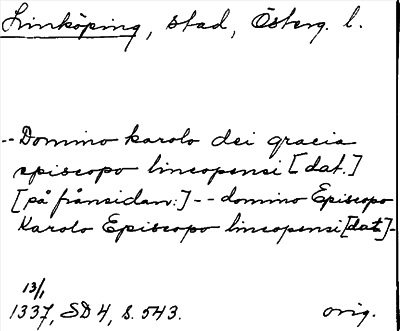 Linköping, stad, Österg. l.
-- Domino karolo dei gracia
episcopo lincopensi [dat.]
[på frånsidan:] -- domino Episcopo
Karolo Episcopo lincopensi [dat.] -
13/1
1337, SD 4, s. 543. orig.